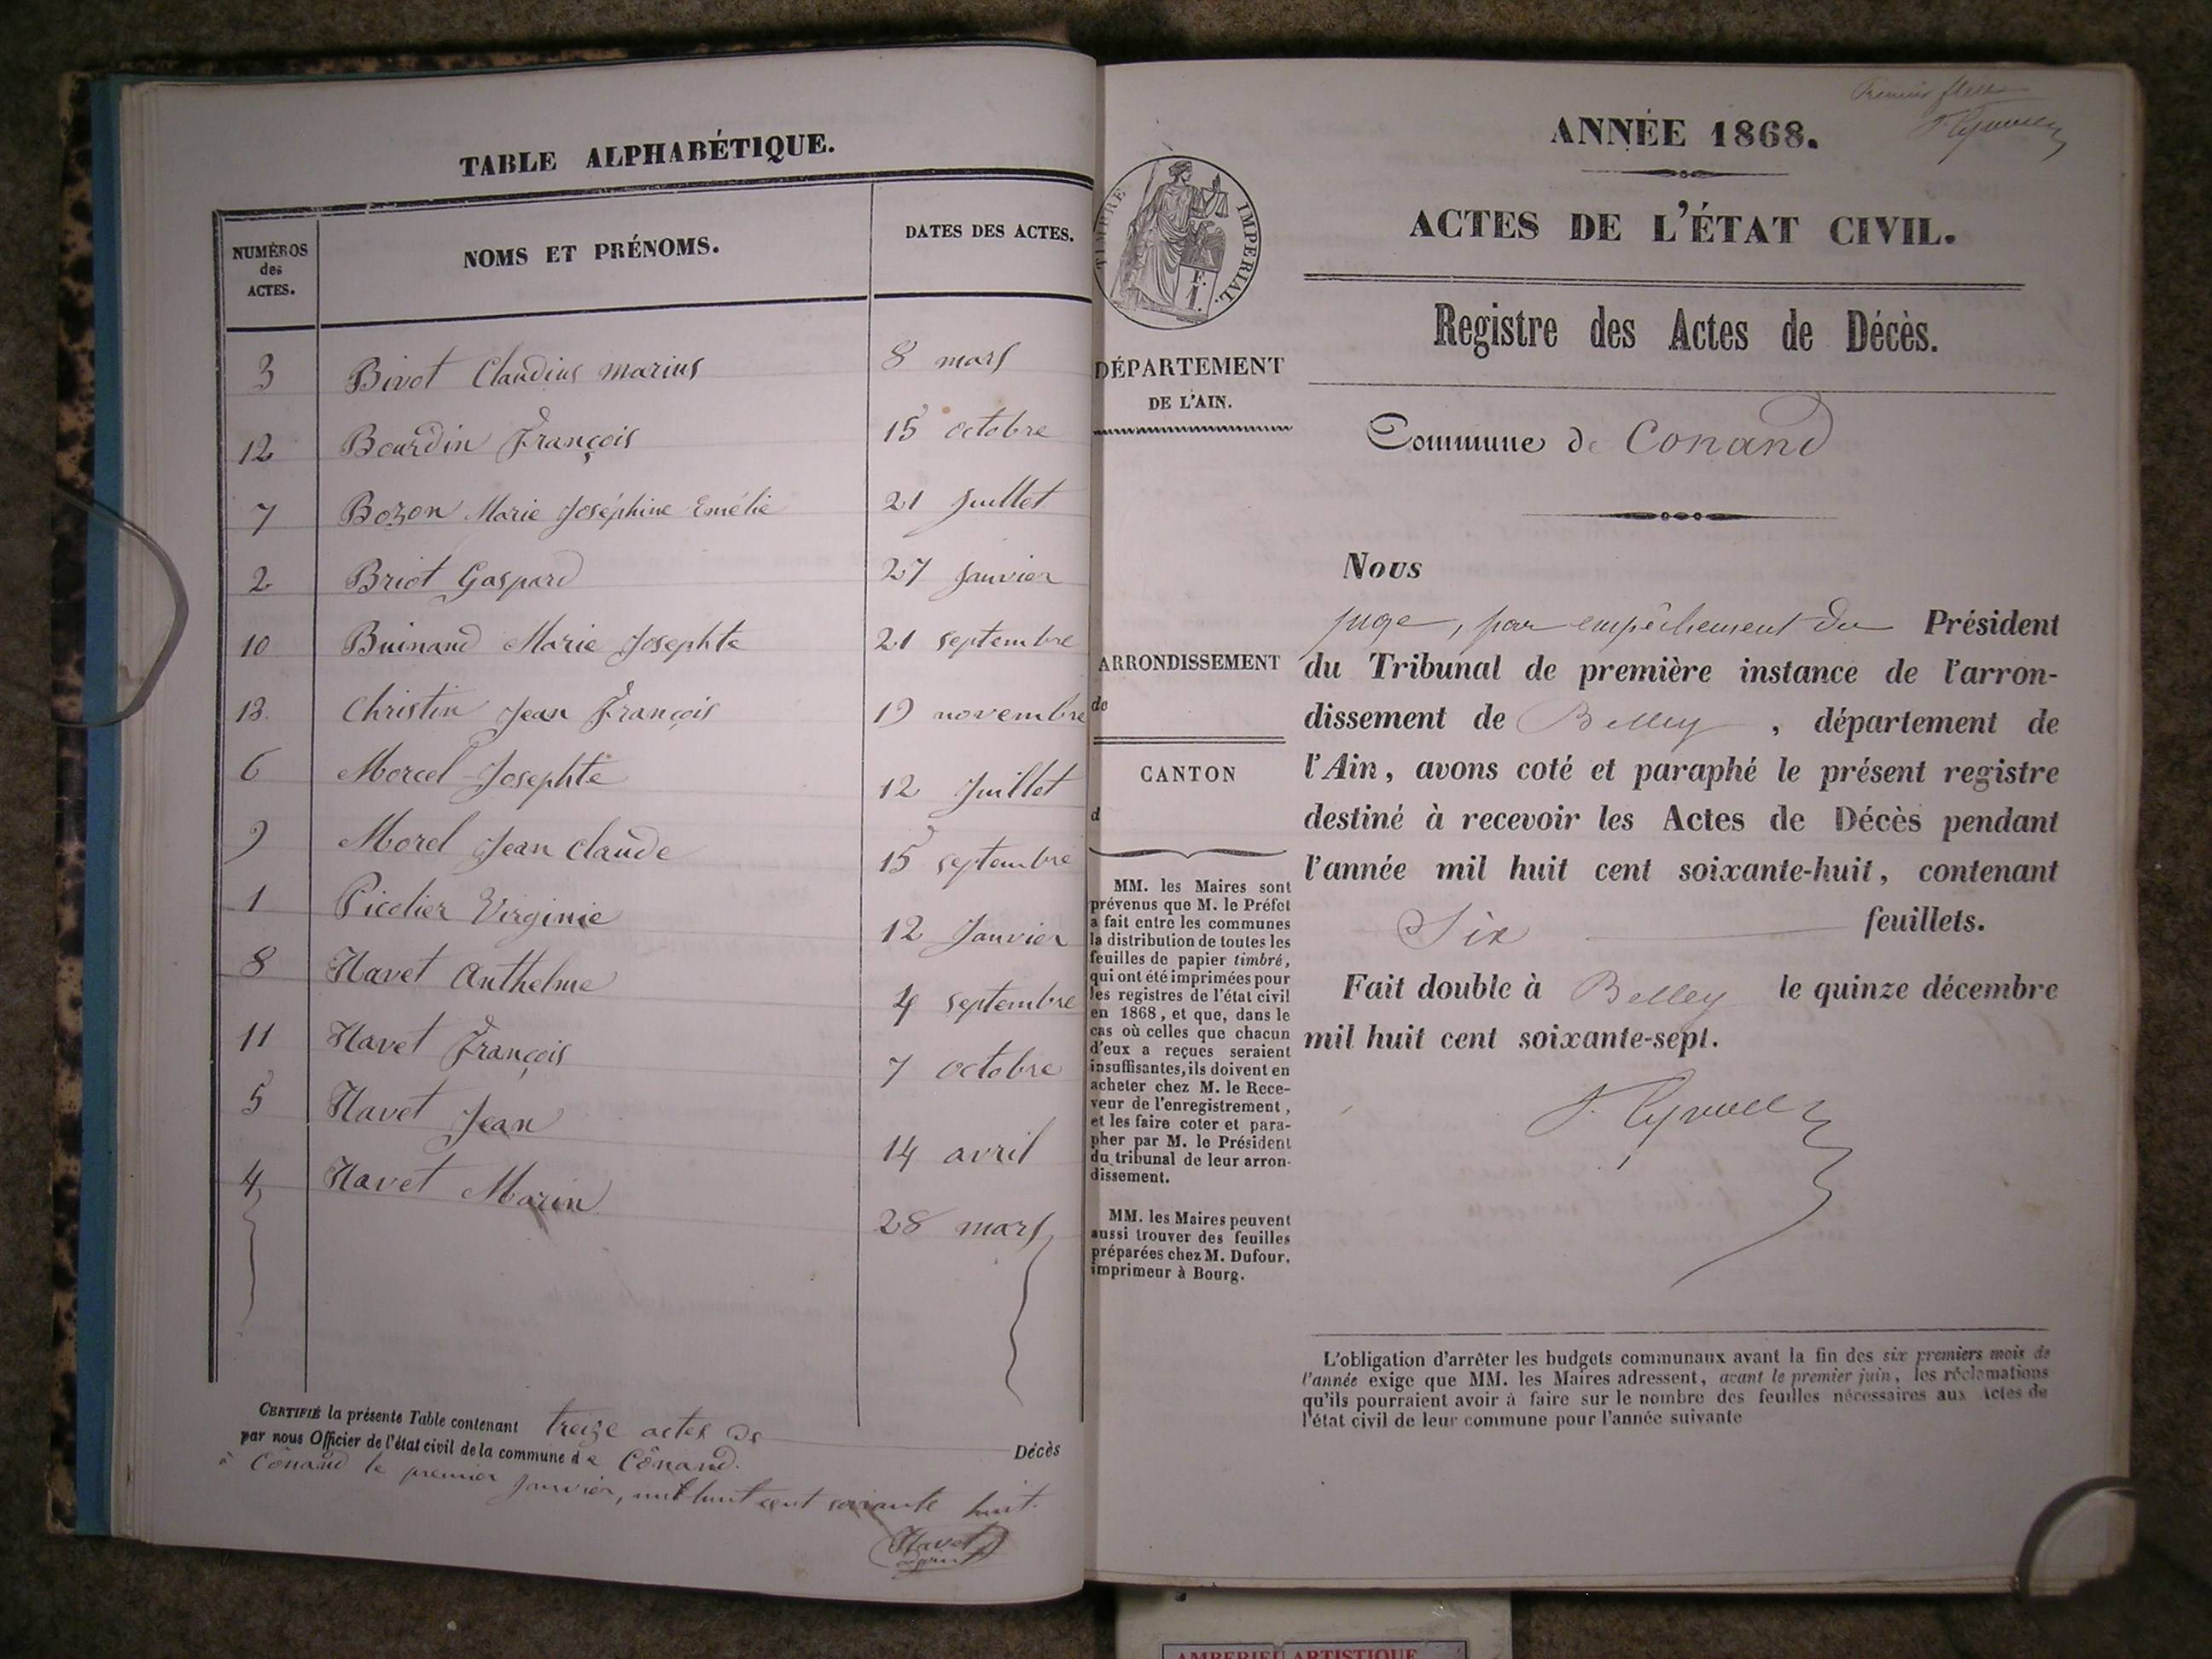 TABLE ALPHABÉTIQUE.
NUMÉROS des ACTES.
NOMS ET PRÉNOMS.
DATES DES ACTES.
3 Bivot Claudius marius 8 mars
12 Bourdin François 15 octobre
7 Bozon Marie Joséphine Emélie 21 Juillet
2 Briot Gaspard 27 Janvier
10 Buinand Marie Josephte 21 septembre
13. Christin Jean François 19 novembre
6 Morcel Josephte 12 Juillet
9 Morel Jean Claude 15 septembre
1 Picolier Virginie 12 Janvier
8 Navet Anthelme 4 septembre
11 Navet François 7 octobre
5 Navet Jean 14 avril
4 Navet Marin 28 mars
CERTIFIÉ la présente Table contenant treize actes de Décès
par nous Officier de l'état civil de la commune de Cônand.
à Cônand le premier Janvier, mil huit cent soixante huit.
Navet
TIMBRE IMPERIAL.
F.
1.
DÉPARTEMENT
DE L'AIN.
ARRONDISSEMENT
de
CANTON
d
MM. les Maires sont
prévenus que M. le Préfet
a fait entre les communes
la distribution de toutes les
feuilles de papier timbré,
qui ont été imprimées pour
les registres de l'état civil
en 1868, et que, dans le
cas où celles que chacun
d'eux a reçues seraient
insuffisantes, ils doivent en
acheter chez M. le Rece-
veur de l'enregistrement,
et les faire coter et para-
pher par M. le Président
du tribunal de leur arron-
dissement.
MM. les Maires peuvent
aussi trouver des feuilles
préparées chez M. Dufour,
imprimeur à Bourg.
Premier
ANNÉE 1868.
ACTES DE L'ÉTAT CIVIL.
Registre des Actes de Décès.
Commune de Conand
Nous
juge, par empêchement du Président
du Tribunal de première instance de l'arron-
dissement de Belley, département de
l'Ain, avons coté et paraphé le présent registre
destiné à recevoir les Actes de Décès pendant
l'année mil huit cent soixante-huit, contenant
Six feuillets.
Fait double à Belley le quinze décembre
mil huit cent soixante-sept.
L'obligation d'arrêter les budgets communaux avant la fin des six premiers mois de
l'année exige que MM. les Maires adressent, avant le premier juin, les réclamations
qu'ils pourraient avoir à faire sur le nombre des feuilles nécessaires aux Actes de
l'état civil de leur commune pour l'année suivante
AMBERIEU ARTISTIQUE